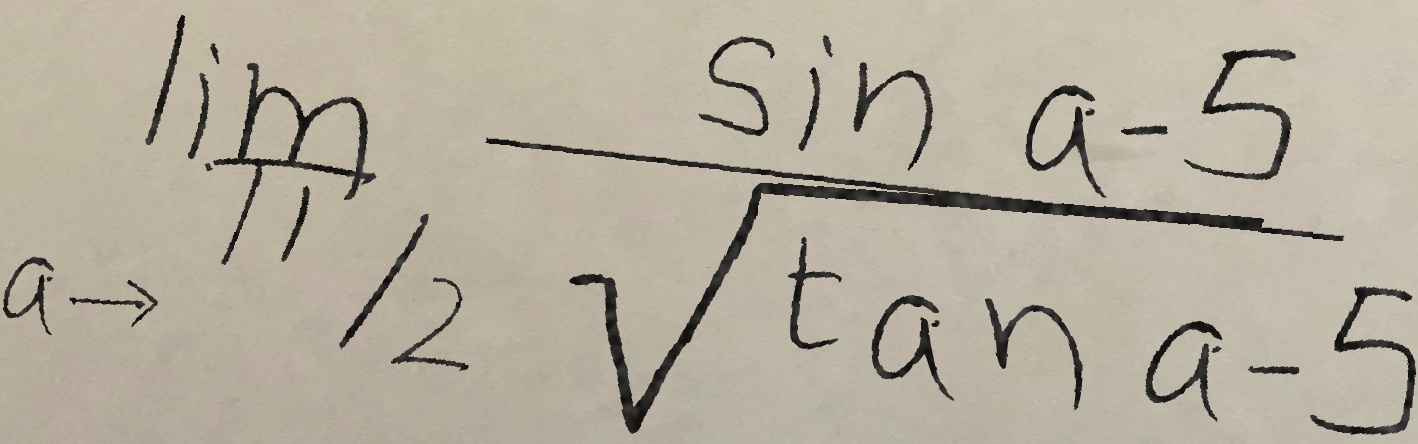 lim a→π/2 (sin a-5)/(√(tan a-5))